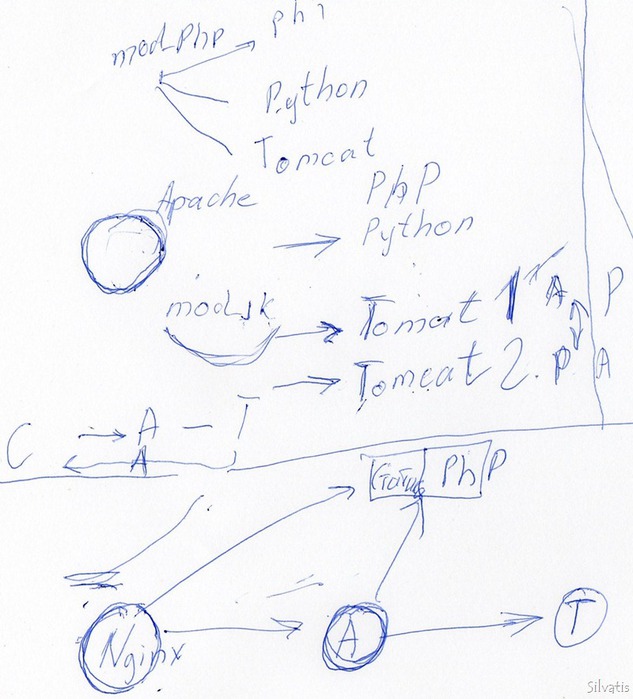 mod_Php Php
Python
Tomcat
Apache
PhP
Python
mod_jk
Tomcat 1 A P
Tomcat 2. P A
C A — T
A
Статика PhP
Nginx A T
Silvatis